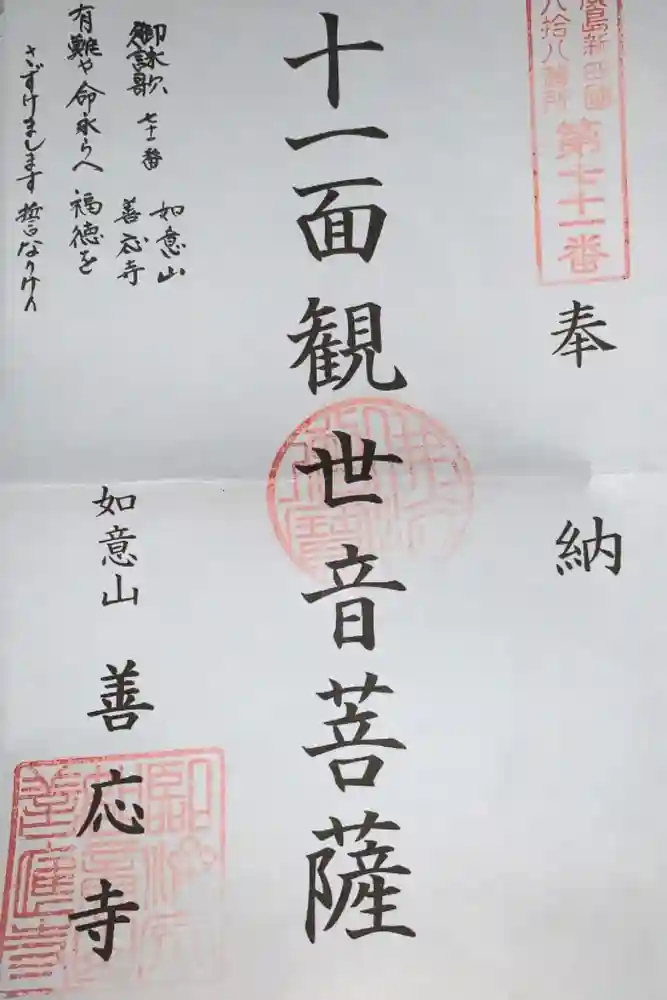 廣島新四國
八拾八箇所
第七十一番
奉納
十一面観世音菩薩
御詠歌 七十一番
如意山
善応寺
有難や命永らへ福徳を
さずけまします誓なりけり
如意山 善応寺